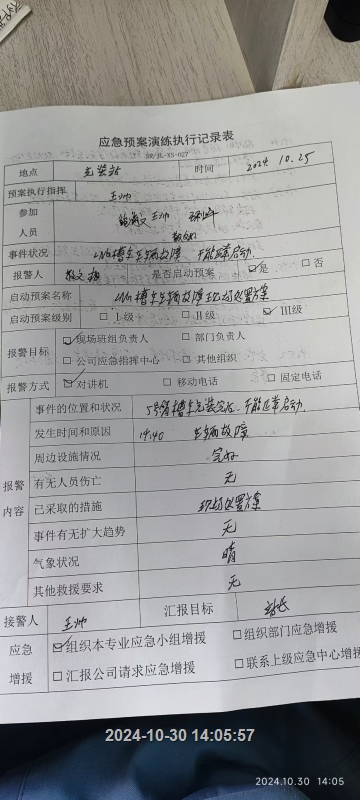 应急预案演练执行记录表
地点 充装站 时间 2024 10.25
预案执行指挥 王帅
参加人员 王帅
事件状况 LNG槽车车辆故障 不能正常启动
报警人 是否启动预案 ☑是 □否
启动预案名称 LNG槽车车辆故障现场处置方案
启动预案级别 □I级 □II级 ☑III级
报警目标 ☑现场班组负责人 □部门负责人
□公司应急指挥中心 □其他组织
报警方式 ☑对讲机 □移动电话 □固定电话
报警内容
事件的位置和状况 5号 槽车充装完后，不能正常启动.
发生时间和原因 14:40 车辆故障
周边设施情况 完好
有无人员伤亡 无
已采取的措施 现场处置方案
事件有无扩大趋势 无
气象状况 晴
其他救援要求 无
接警人 王帅 汇报目标 站长
应急增援 ☑组织本专业应急小组增援 □组织部门应急增援
□汇报公司请求应急增援 □联系上级应急中心增援
2024-10-30 14:05:57
2024.10.30 14:05